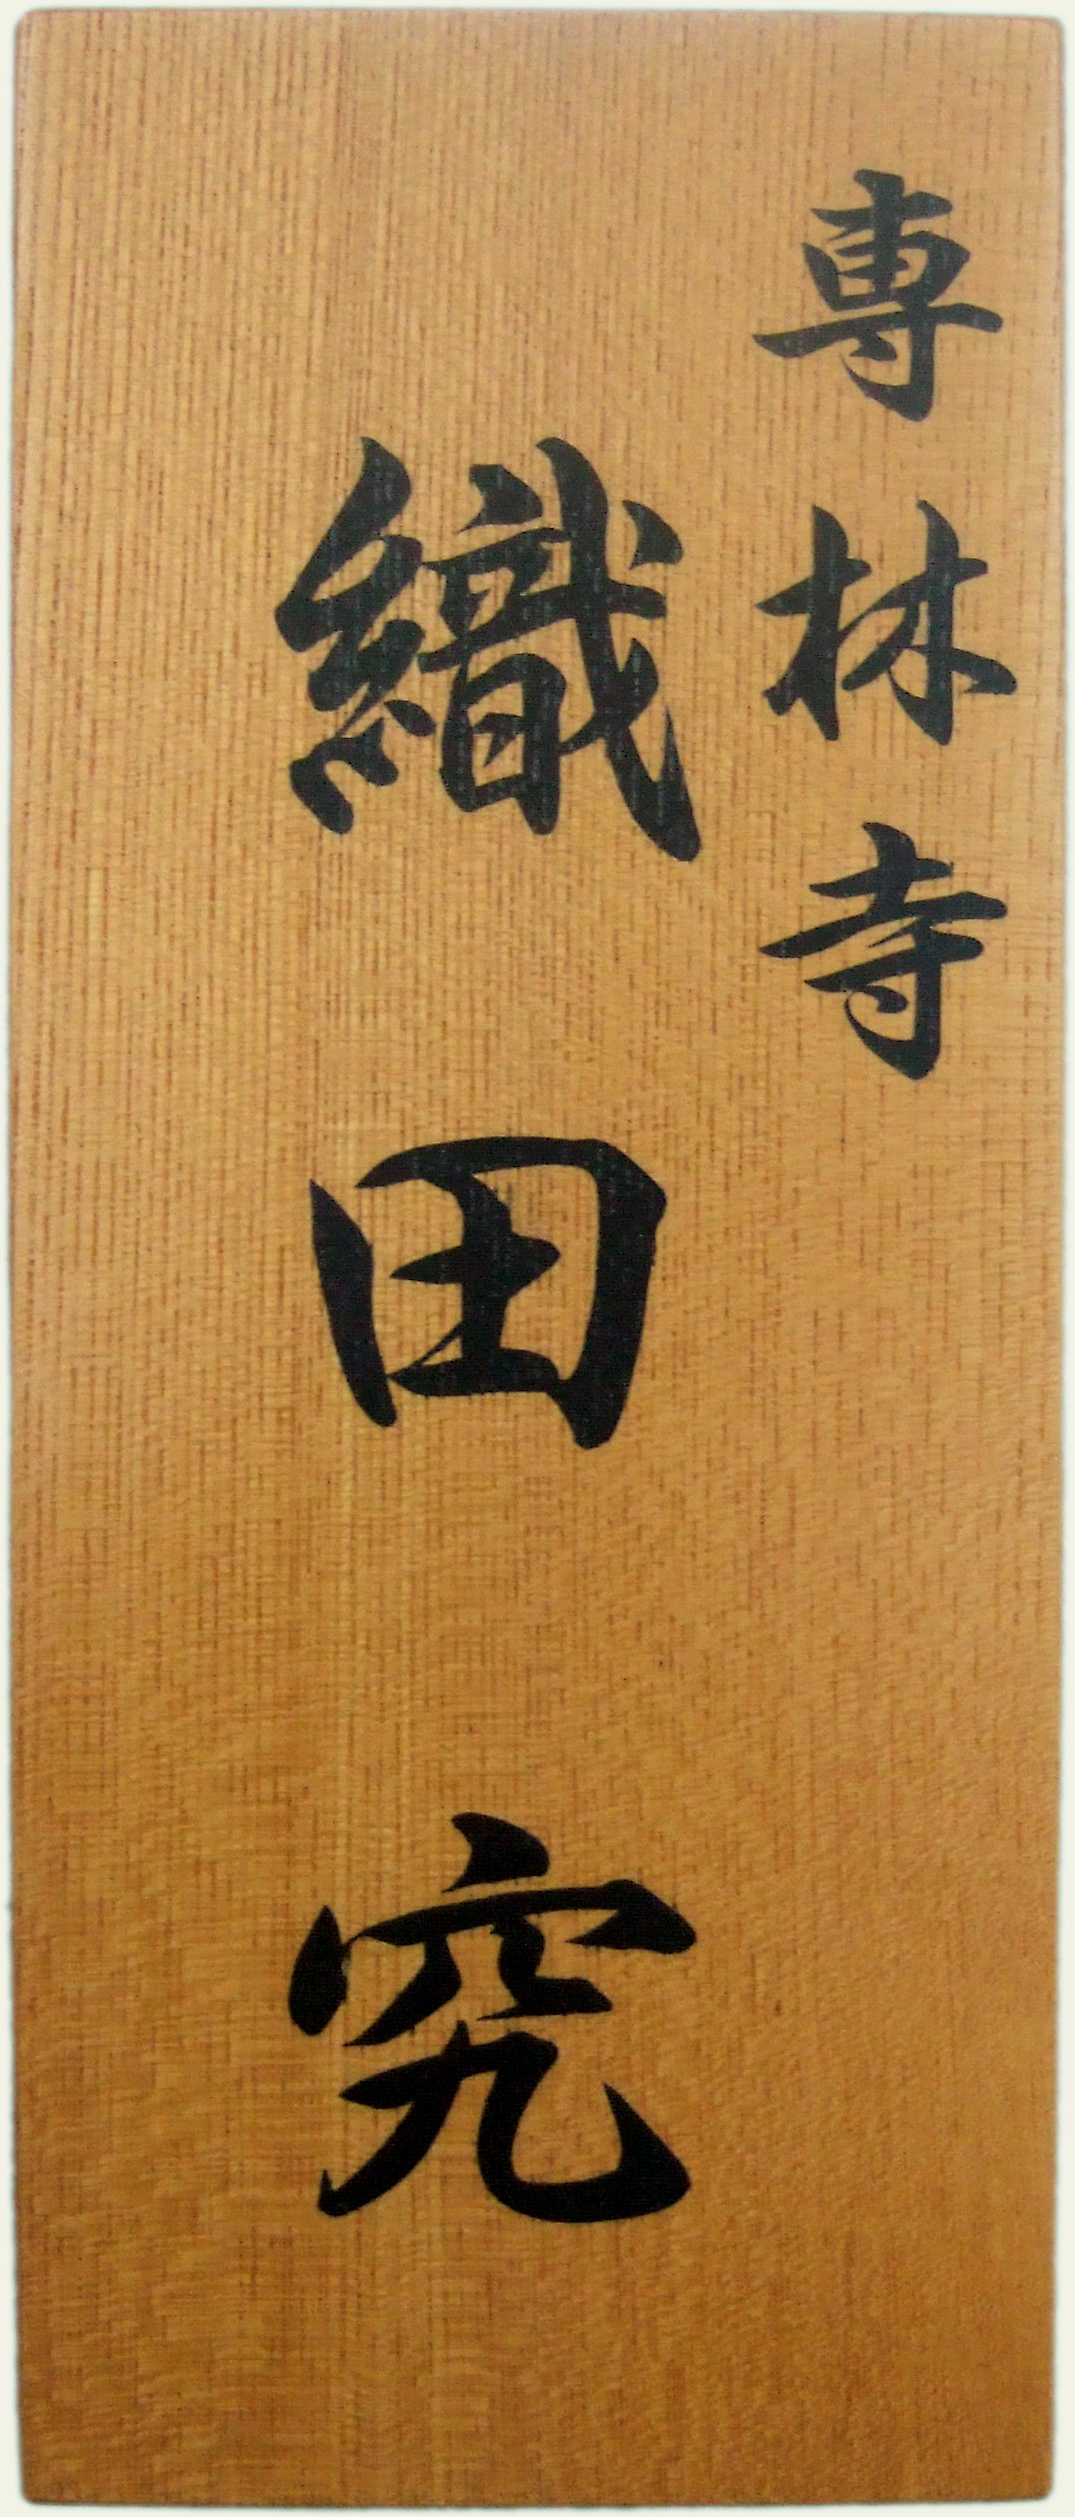 専林寺
織田究